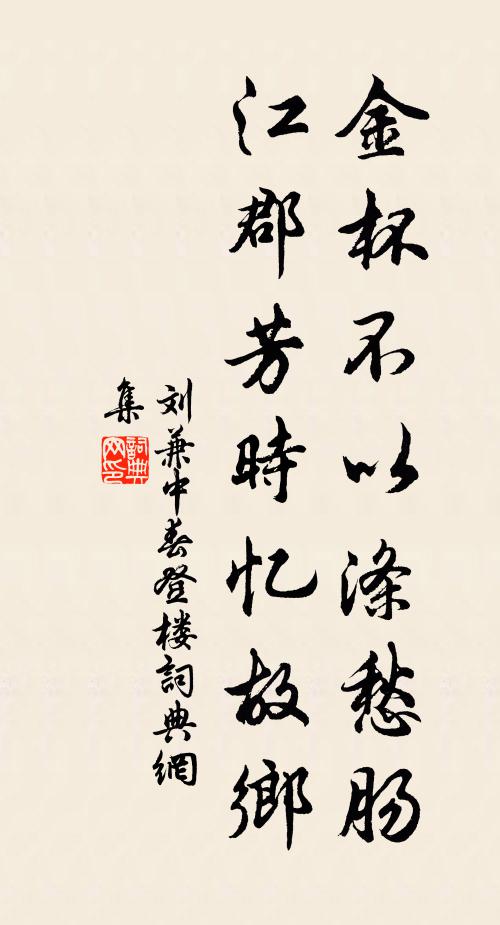 金杯不以涤愁肠
江郡芳時忆故鄉
刘兼中春登楼詞典網
集
詞典
网印